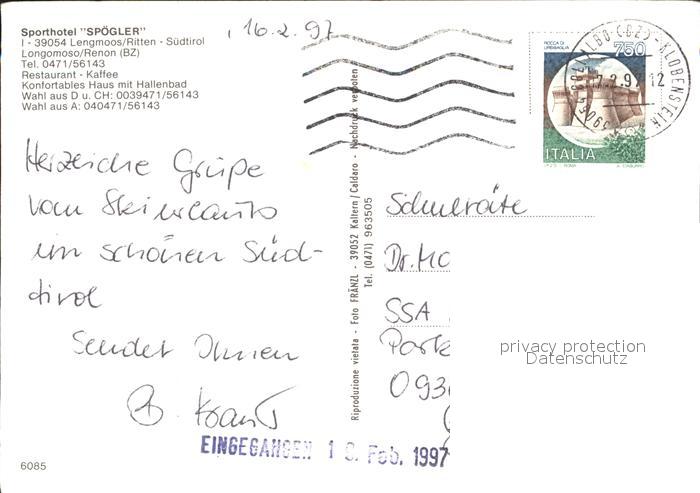 Sporthotel "SPÖGLER"
I - 39054 Lengmoos/Ritten - Südtirol
Longomoso/Renon (BZ)
Tel. 0471/56143
Restaurant - Kaffee
Konfortables Haus mit Hallenbad
Wahl aus D u. CH: 0039471/56143
Wahl aus A: 040471/56143
16.2.97
Herzliche Grüße
vom
im schönen Süd-
tirol
Sendet Ihnen
B.
6085
Riproduzione vietata - Foto FRÄNZL - 39052 Kaltern/Caldaro - Nachdruck verboten
Tel. (0471) 963505
ROCCA DI URBISAGLIA
750
ITALIA
KLOBENSTEIN
12
Schulräte
Dr. Mo
SSA
Park
093
EINGEGANGEN 1 Feb. 1997
privacy protection
Datenschutz